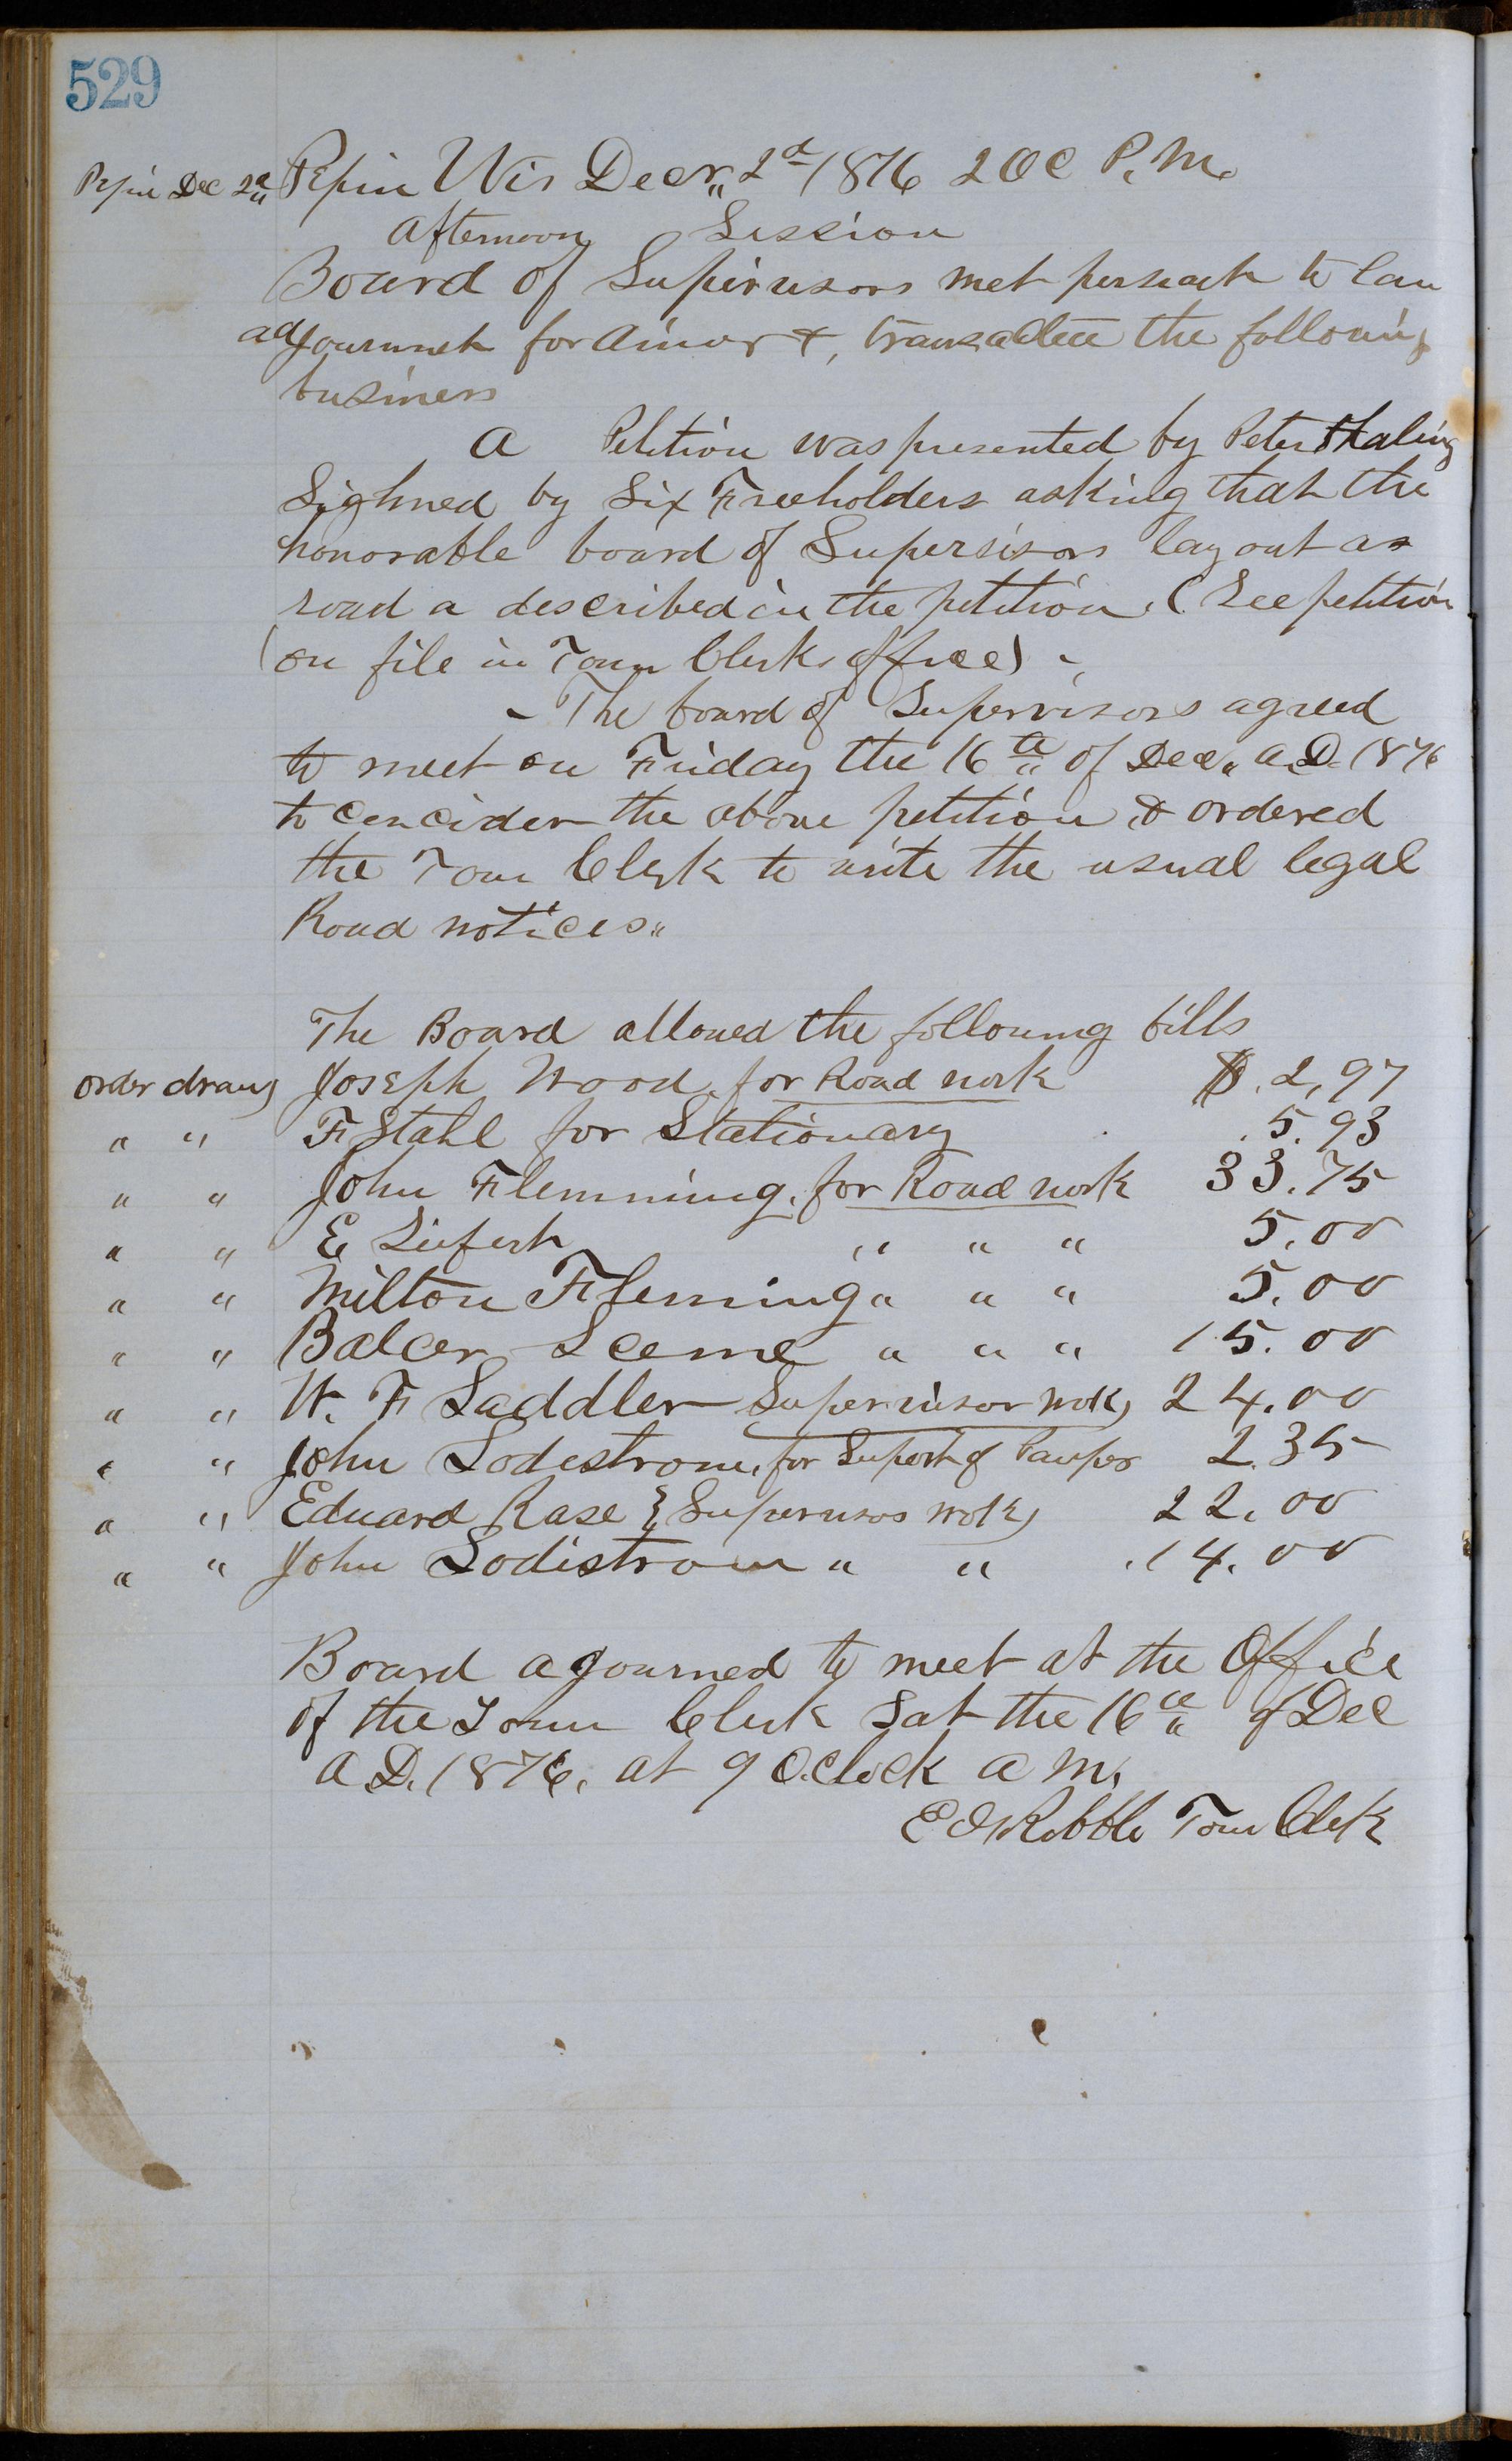 529
Pepin Dec 2d Pepin Wis Decr 2d 1876 2 OC P.M.
afternoon Session
Board of Supervisors met
adjournmet for dinner &, transacted the following
business
A Petition was presented by Peter
Sighned by Six Freeholders asking that the
honorable board of Supersisors lay out as
road a described in the petition. (See petition
(on file in Town Clerks office) -
- The board of Supervisors agreed
to meet on Friday the 16th of Dec. A.D. 1876
to concider the above petition & ordered
the Town Clerk to write the usual legal
Road notices"
The Board allowed the following bills
order drawn Joseph Wood for Road work $ 2,97
" " F Stahl for Stationary 5.93
" " John Flemming. for Road work 33.75
" " E " " " 5.00
" " Milton Fleming " " " 5.00
" " Balcer " " " 15.00
" " W. F Saddler Supervisor work 24.00
" " John Lodestrom, for Suport of Pauper 2.35
" " Edward Rase { Supervisor work 22.00
" " John Lodistrom " " 14.00
Board agourned to meet at the Office
of the Town Clerk Sat the 16th of Dec
A D. 1876, at 9 O.Clock a m.
Town Clek